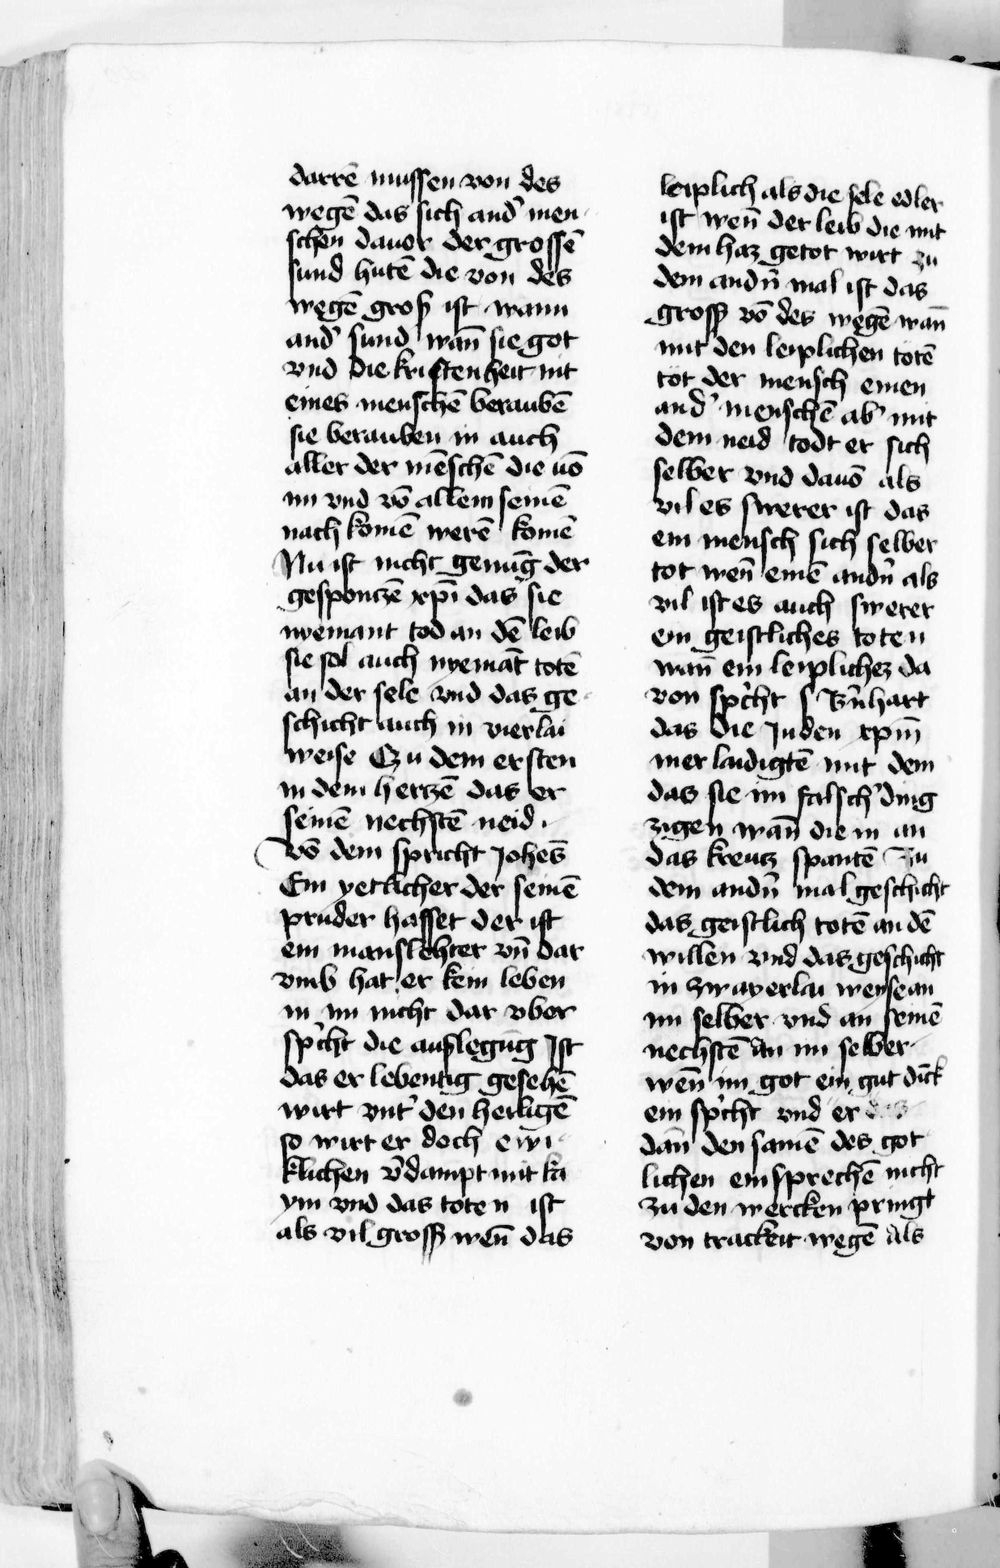 darrē mussen von des
wegē das sich and᾽ men-
schen davor der grossē
sund hutē die von des
wegē groß ist wann
and᾽ sund wan̄ sie got
vnd die kristenheit nit
eines menschē beraubē
sie berauben in auch
aller der mēschē die uō
im vnd vō allem seinē
nach komē werē komē
Nu ist nicht genūg der
gesponczē xp̄i das sie
nyemant tod an dē leib
sie sol auch nyemāt totē
an der sele vnd das ge-
schicht auch in vierlai
weise Czu dem ersten
in dem herczē das er
seinē nechstē neid.
Vō dem spricht Johēs
Ein yetlicher der seinē
pruder hasset der ist
ein manslehter vn̄ dar
vmb hat er kein leben
in im nicht dar vber
sp᾽cht die auslegūg Ist
das er lebentig gesehē
wirt vnt᾽ den heiligē
so wirt er doch ewi-
klichen v᾽dampt mit ka
ym vnd das toten ist
als vil gross᾽ wen̄ das
leiplich als die sele edler
ist wen̄ der leib die mit
dem haz getot wirt zu
dem andn̄ mal ist das
gross᾽ vō des wegē wan̄
mit den leiplichen totē
tot der mensch einen
and᾽ menschē ab᾽ mit
dem neid todt er sich
selber vnd dauō als
vil es swerer ist das
ein mensch sich selber
tot wen̄ einē andn̄ als
vil ist es auch swerer
ein geistliches toten
wan̄ ein leiplichez da
von sp᾽cht s B᾽nhart
das die Juden xpm̄
mer laidigtē mit dem
das sie im falsch᾽ ding
zigen wan̄ die in an
das kreutz spantē Zu
dem andn̄ mal geschicht
das geistlich totē an dē
willen vnd das geschicht
in zwayerlai weyse an
im selber vnd an seinē
nechstē An im selber
wen̄ im got ein gut dīck
ein sp᾽cht vnd er das
dan̄ den samē des got
lichen einsprechē nicht
zu den wercken pringt
von trackeit wegē Als